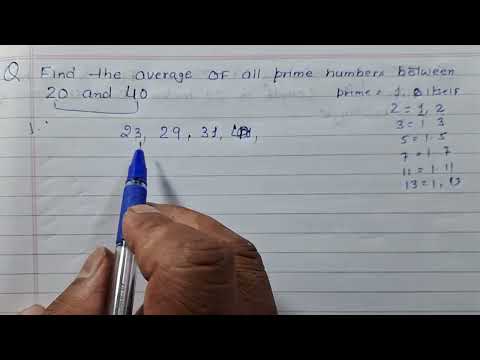 Q Find the average of all prime numbers between
20 and 40
prime = 1, itself
2 = 1, 2
3 = 1. 3
5 = 1. 5
7 = 1. 7
11 = 1. 11
13 = 1, 13
23, 29, 31,